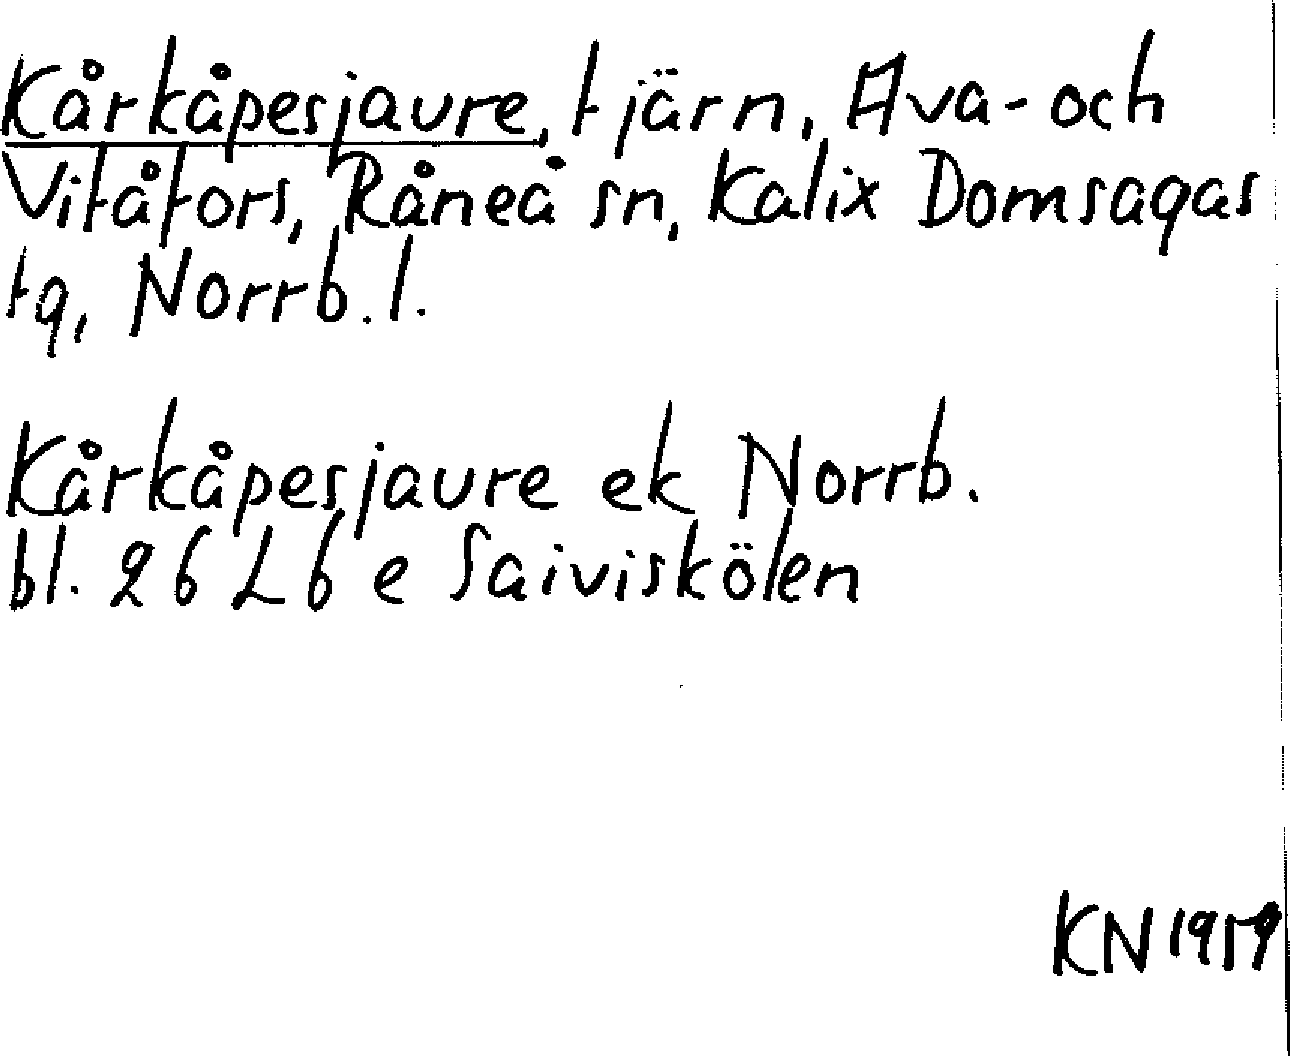 Kårkåpesjaure, tjärn, Ava- och
Vitåfors, Råneå sn, Kalix Domsagas
tg, Norrb. l.
Kårkåpesjaure ek Norrb.
bl. 26 L 6 e Saiviskölen
KN 1959